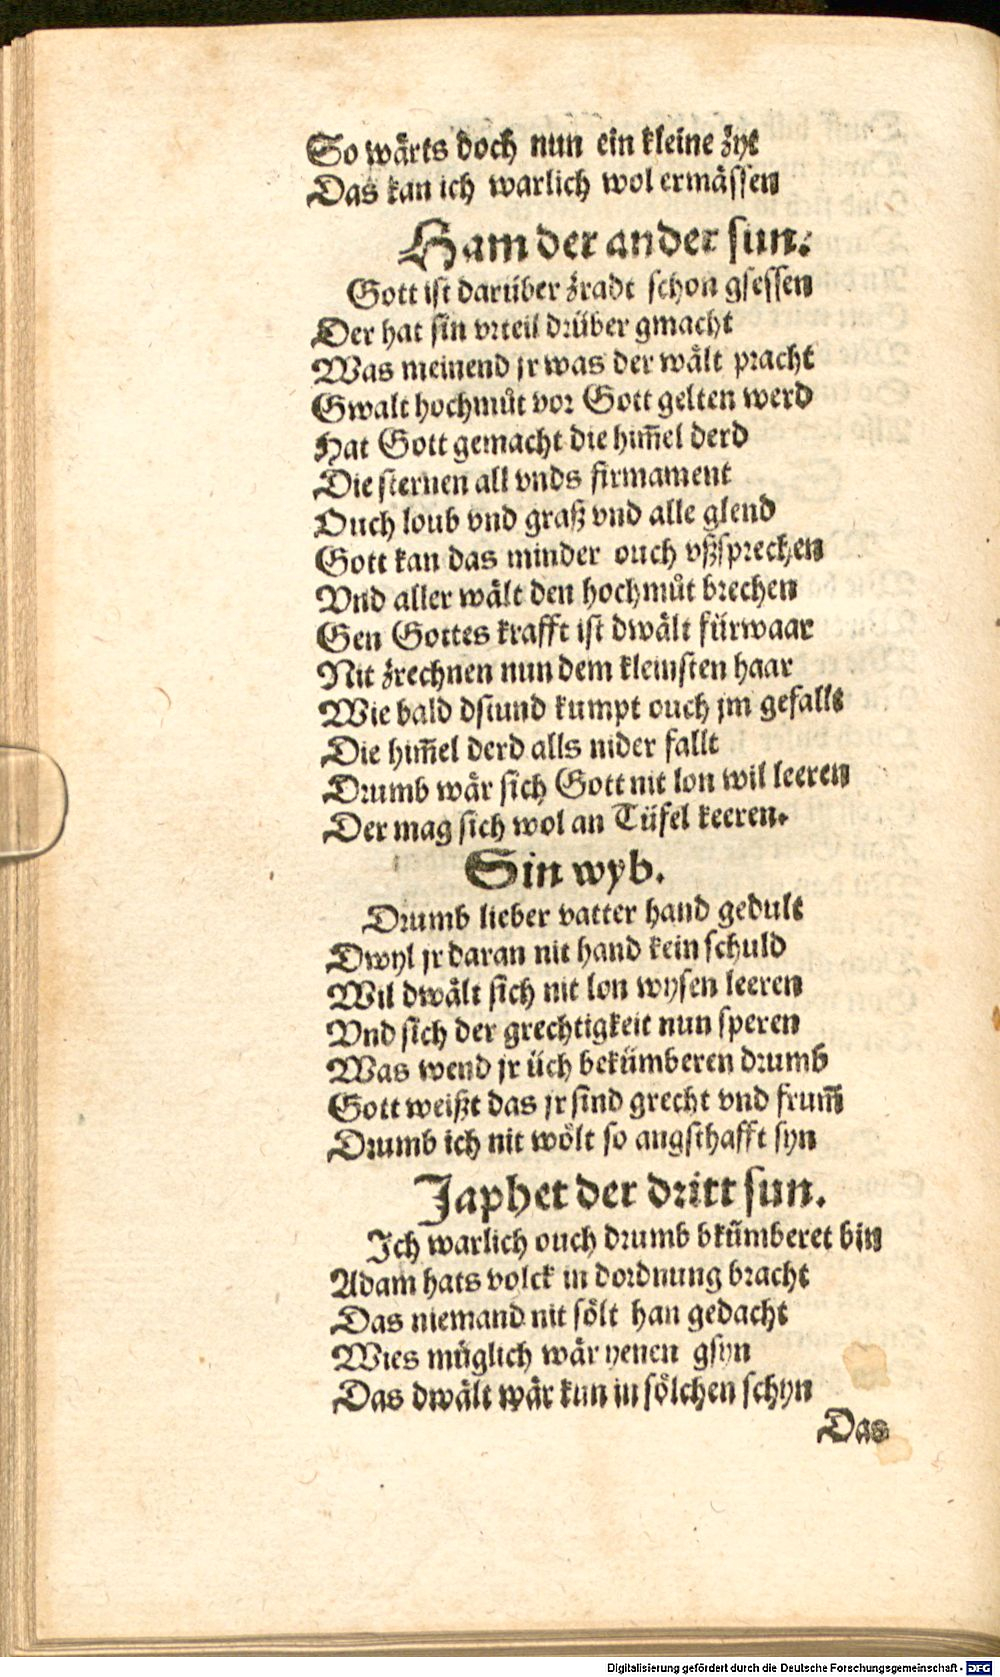 So wärts doch nun ein kleine zyt
Das kan ich warlich wol ermässen
Ham der ander sun.
Gott ist darüber zradt schon gsessen
Der hat sin vrteil drüber gmacht
Was meinend jr was der wält pracht
Gwalt hochmůt vor Gott gelten werd
Hat Gott gemacht die him̄el derd
Die sternen all vnds firmament
Ouch loub vnd graß vnd alle glend
Gott kan das minder ouch vßsprechen
Vnd aller wält den hochmůt brechen
Gen Gottes krafft ist dwält fürwaar
Nit zrechnen nun dem kleinsten haar
Wie bald dstund kumpt ouch jm gefallt
Die him̄el derd alls nider fallt
Drumb wär sich Gott nit lon wil leeren
Der mag sich wol an Tüfel keeren.
Sin wyb.
Drumb lieber vatter hand gedult
Dwyl jr daran nit hand kein schuld
Wil dwält sich nit lon wysen leeren
Vnd sich der grechtigkeit nun speren
Was wend jr üch bekümberen drumb
Gott weißt das jr sind grecht vnd frum̄
Drumb ich nit wölt so angsthafft syn
Japhet der dritt sun.
Ich warlich ouch drumb bkümberet bin
Adam hats volck in dordnung bracht
Das niemand nit sölt han gedacht
Wies müglich wär yenen gsyn
Das dwält wär kun in sölchen schyn
Das
Digitalisierung gefördert durch die Deutsche Forschungsgemeinschaft - DFG